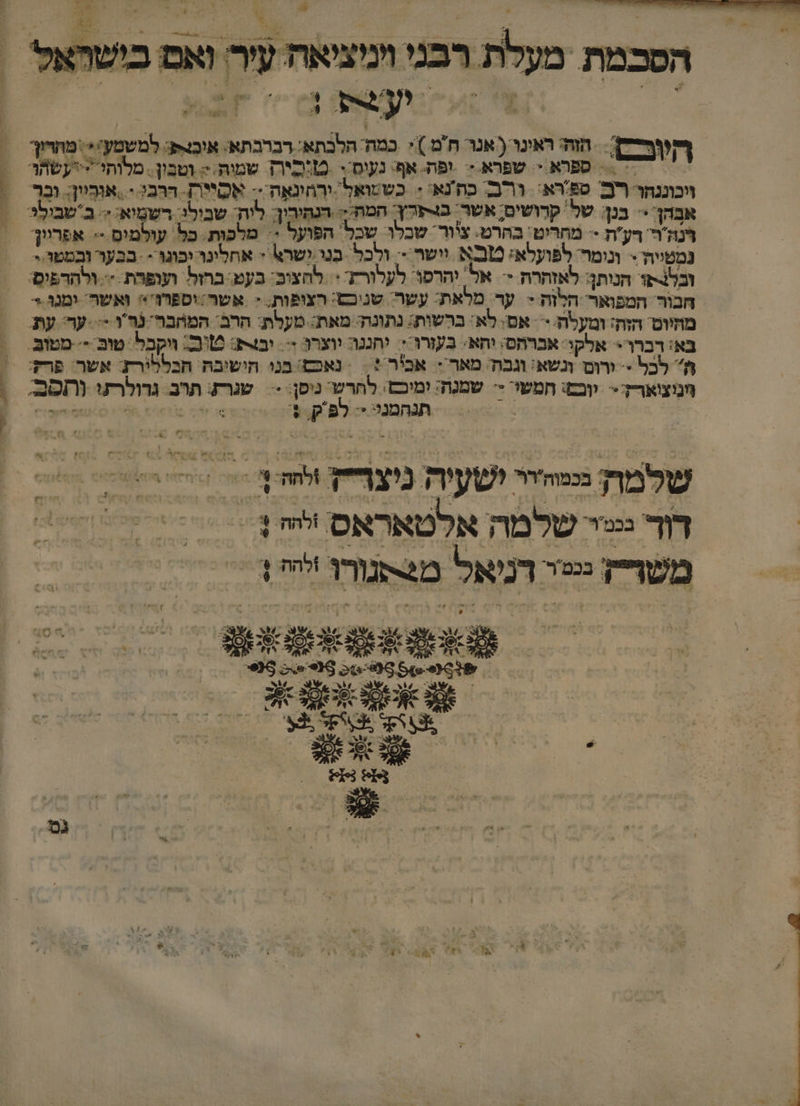 הסכמת מעלת רבני ויניציאה עיר ואם בישראל
יע״א :
היום הזה ראינו (אנו ח״מ) כמה הלכתא רברבתא איכא למשמע מהדין
ספרא שפרא יפה אף נעים טוביה שמיה וטבין מלוהי יעשהו
ויכוננהו רב ספרא ורב כהנא כשמואל ירחינאה אסייה דרבי אוריין ובר
אבהן בנן של קדושים אשר בארץ המה דנהירין ליה שבילי דשמיא כשבילי
דנה״ר דע״ת מחריט בחרט ציור שכלו שכל הפועל מלכות כל עולמים אפריון
נמטייה ונימר לפועלא טבא ויישר ולכל בני ישראל אחלינו יכונו
הניתן לאזהרה אל יהרסו לעלות לחצוב בעט ברזל ועופרת ולהדפיס
חבור המפואר הלזה עד מלאת עשר שנים רצופות אשר יספרו ואשר ימנו
מהיום הזה ומעלה אם לא ברשות נתונה מאת מעלת הרב המחבר נר״ו עד עת
בא דברו אלקי אברהם יהא בעזרו יחננו יוצרו יבא טוב ויקבל טוב מטוב
ה׳ לכל ירום ונשא וגבה מאד אכי״ר נאם בני הישיבה הכללית אשר פה
ויניציאה יום חמשי שמנה ימים לחדש ניסן שנת תרב גדולתי ותסב
תנחמני לפ״ק :
שלמה בכמוה״רר ישעיה ניצה זלהה :
דוד בכמ״ר שלמה אלטאראס זלהה :
משה בכמ״ר דניאל מאגורו זלהה :
גם